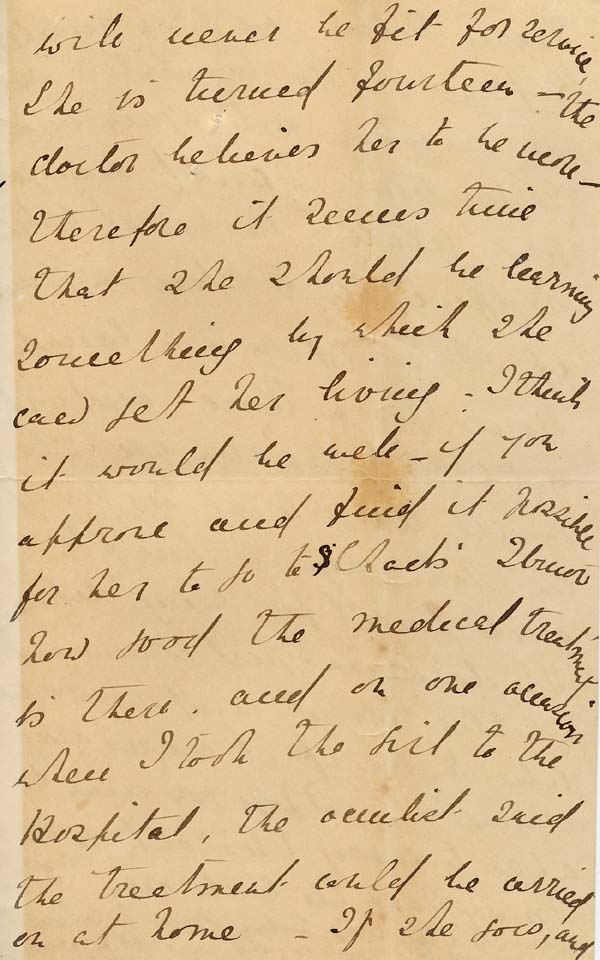 will never be fit for service,
She is turned fourteen — the
doctor believes her to be more —
therefore it seems time
that she should be learning
something by which she
can get her living - I think
it would be well - if you
approve and find it possible
for her to go to I know
how good the medical treatment
is there. and on one occasion
when I took the girl to the
Hospital, the oculist said
the treatment could be carried
on at home - If she goes, and